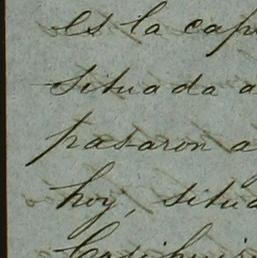 es la cap
situada a
pasaron a
hoy, situa